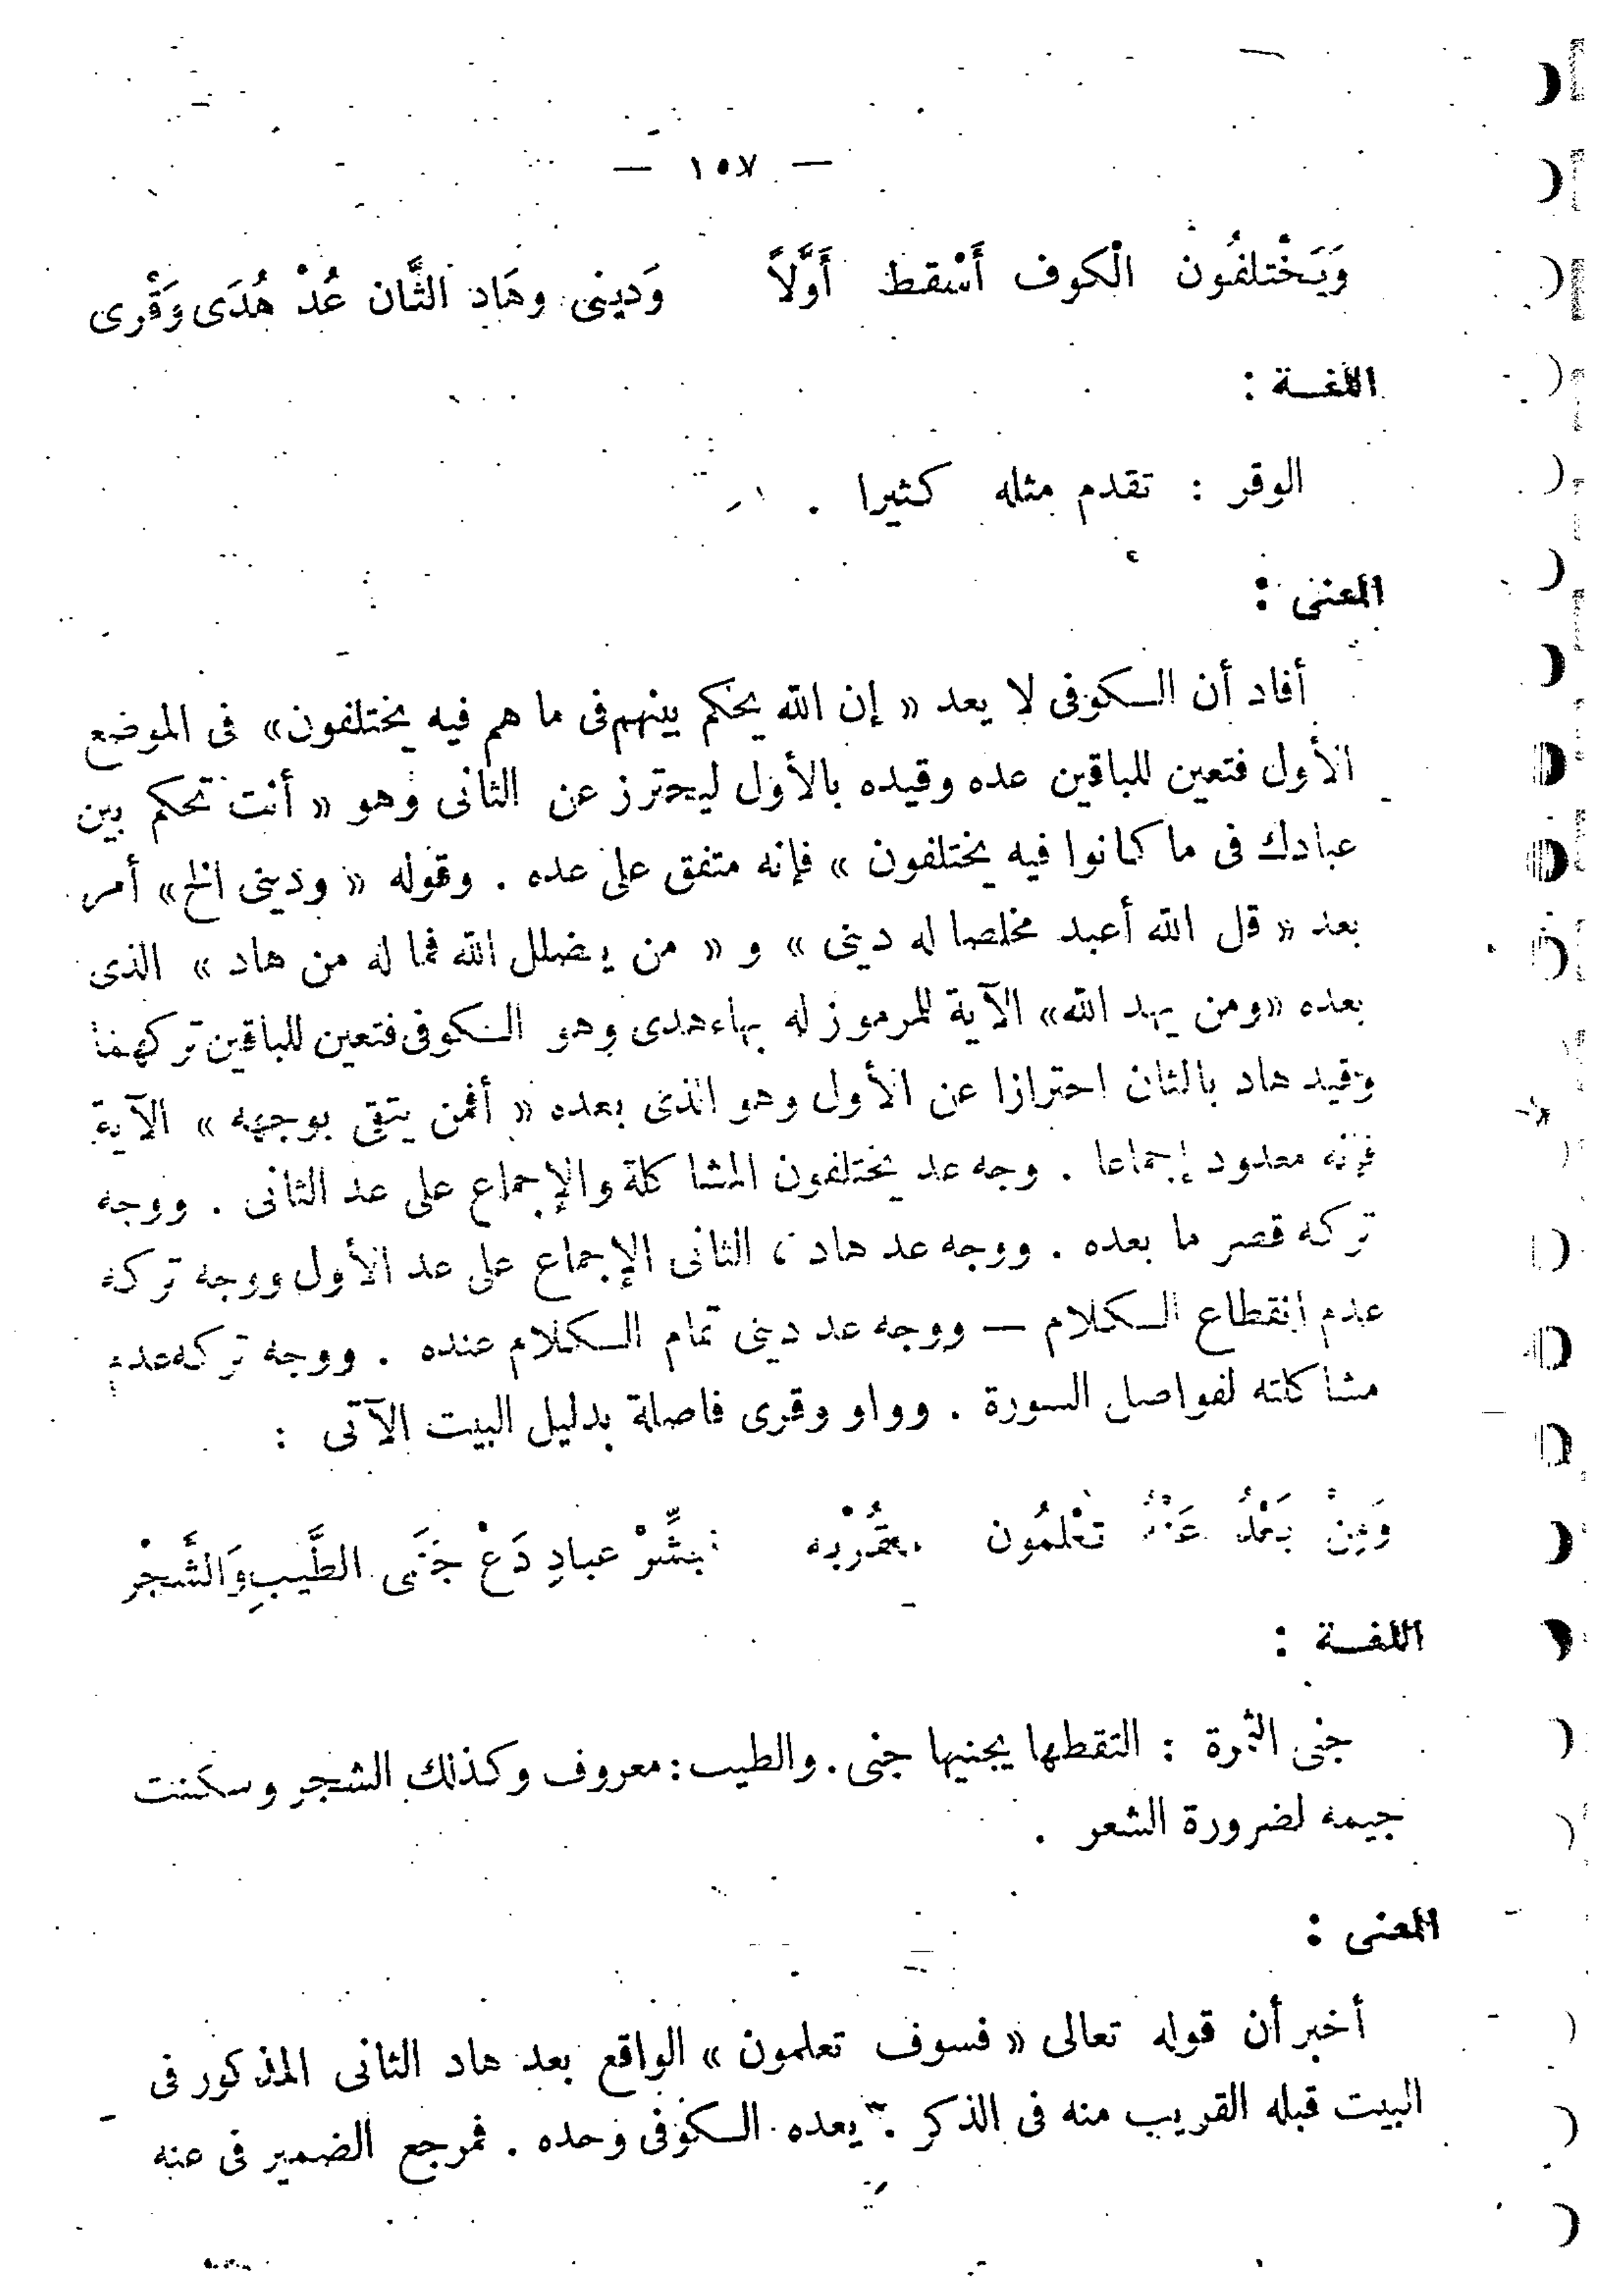 — ١٥٧ —
وَيَخْتلفُون الْكوف أَسْقط أَوَّلاً وَدينى وهَاد الثَّان عُدْ هُدَى وَقْرى
اللغــة :
الوقر : تقدم مثله كثيرا .
المعنى :
أفاد أن الــكوفى لا يعد « إن الله يحكم بينهم فى ما هم فيه يختلفون» فى الموضع
الأول فتعين للباقين عده وقيده بالأول ليحترز عن الثانى وهو « أنت تحكم بين
عبادك فى ما كانوا فيه يختلفون » فإنه متفق على عده . وقوله « ودينى الخ» أمر
بعد « قل الله أعبد مخلصا له دينى » و « من يضلل الله فما له من هاد » الذى
بعده «ومن يهد الله» الآية للمرموز له بهاء هدى وهو الــكوفى فتعين للباقين تركهما
وقيد هاد بالثان احترازا عن الأول وهو الذى بعده « أفمن يتقى بوجهه » الآية
فإنه معدود إجماعا . وجه عد يختلفون المشاكلة والإجماع على عد الثانى . ووجه
تركه قصر ما بعده . ووجه عد هاد ، الثانى الإجماع على عد الأول ووجه تركه
عدم انقطاع الــكلام — ووجه عد دينى تمام الــكلام عنده . ووجه تركه عدم
مشاكلته لفواصل السورة . وواو وقرى فاصلة بدليل البيت الآتى :
وَمِنْ بَعْدُ عَنْهُ تَعْلمُون بقُرْبه فبشِّرْ عبادِ دَعْ جَنَى الطَّيبِ وَالشَّجْر
اللغــة :
جنى الثمرة : التقطها يجنيها جنى . والطيب : معروف وكذلك الشجر وسكنت
جيمه لضرورة الشعر .
المعنى :
أخبر أن قوله تعالى « فسوف تعلمون » الواقع بعد هاد الثانى المذكور فى
البيت قبله القريب منه فى الذكر . يعده الــكوفى وحده . فمرجع الضمير فى عنه